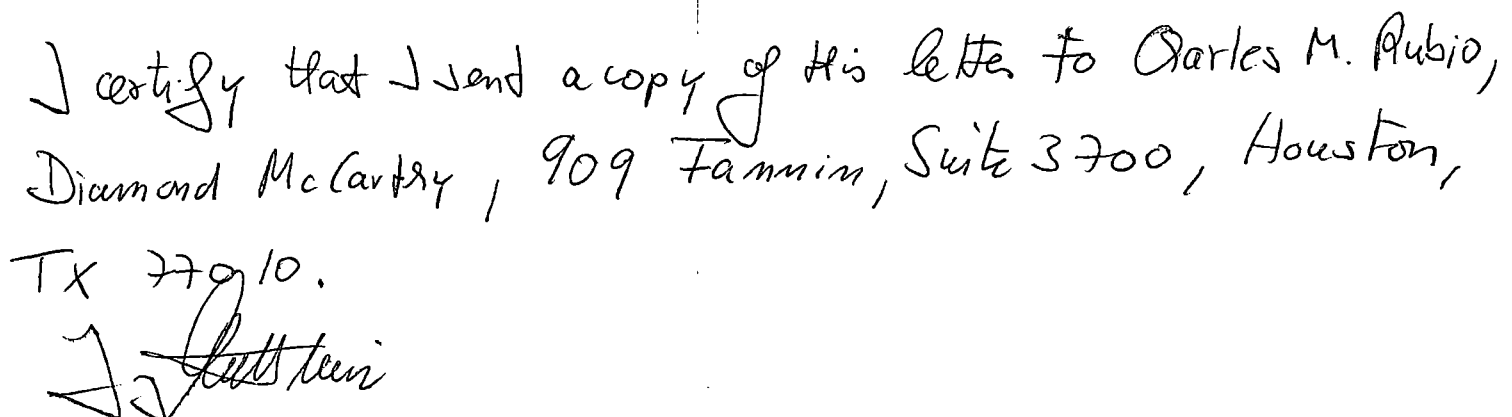 I certify that I send a copy of this letter to Charles M. Rubio,
Diamond McCarthy, 909 Fannin, Suite 3700, Houston,
TX 77010.